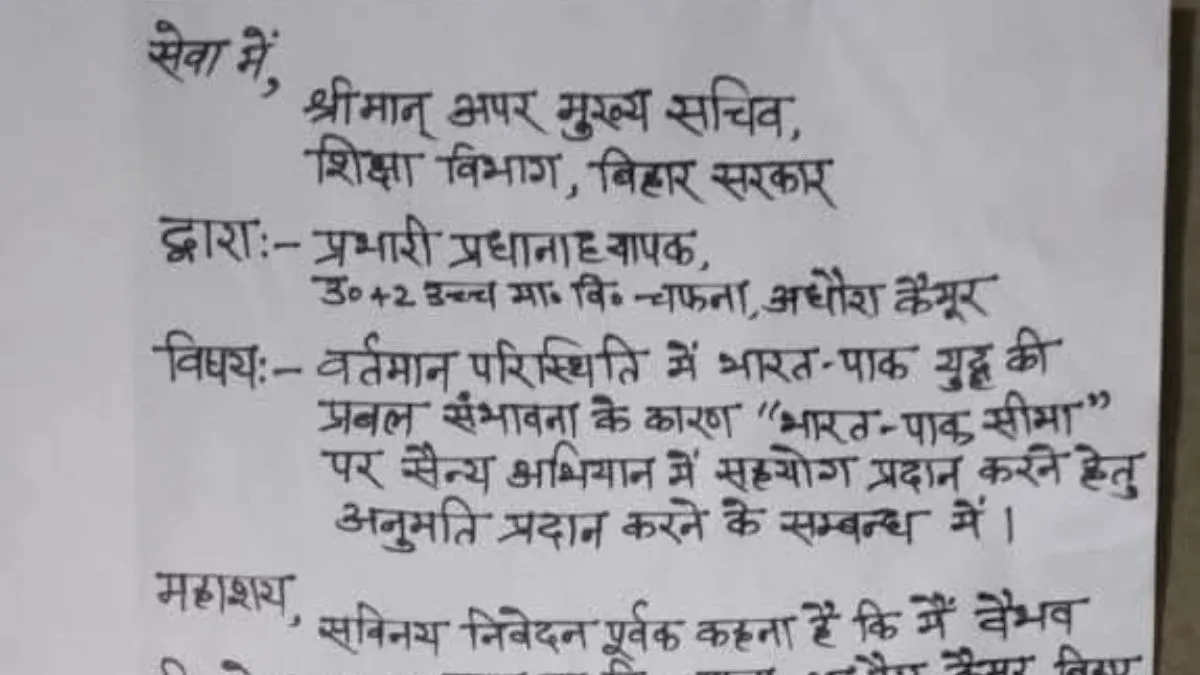 सेवा में,
श्रीमान् अपर मुख्य सचिव,
शिक्षा विभाग, बिहार सरकार
द्वारा:- प्रभारी प्रधानाध्यापक,
उ० +2 उच्च मा० वि० चफना, अधौरा कैमूर
विषय:- वर्तमान परिस्थिति में भारत-पाक युद्ध की
प्रबल संभावना के कारण "भारत-पाक सीमा"
पर सैन्य अभियान में सहयोग प्रदान करने हेतु
अनुमति प्रदान करने के सम्बन्ध में।
महाशय,
सविनय निवेदन पूर्वक कहना है कि मैं वैभव
कैमूर